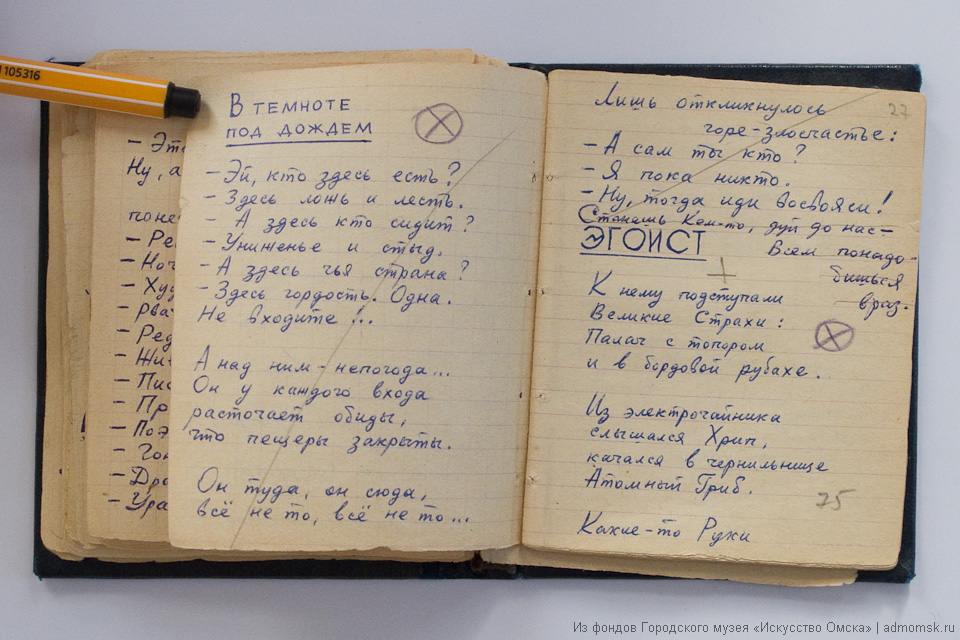 105316
- Это
Ну, а
поне
- Ре
- Ноч
- Худ
- рва
- Ред
- Жи
- Пис
- Пр
- Поэ
- Гон
- Дра
- Ура
В ТЕМНОТЕ
ПОД ДОЖДЕМ
- Эй, кто здесь есть?
- Здесь ложь и лесть.
- А здесь кто сидит?
- Униженье и стыд.
- А здесь чья страна?
- Здесь гордость. Одна.
Не входите!..
А над ним - непогода...
Он у каждого входа
расточает обиды,
что пещеры закрыты.
Он туда, он сюда,
всё не то, всё не то...
27
Лишь откликнулось
горе-злосчастье:
- А сам ты кто?
- Я пока никто.
- Ну, тогда иди восвояси!
Станешь Кем-то, дуй до нас -
Всем понадо-
бишься
враз.
ЭГОИСТ
К нему подступали
Великие Страхи:
Палач с топором
и в бордовой рубахе.
Из электрочайника
слышался Хрип,
качался в чернильнице
Атомный Гриб.
75
Какие-то Руки
Из фондов Городского музея «Искусство Омска» | admomsk.ru